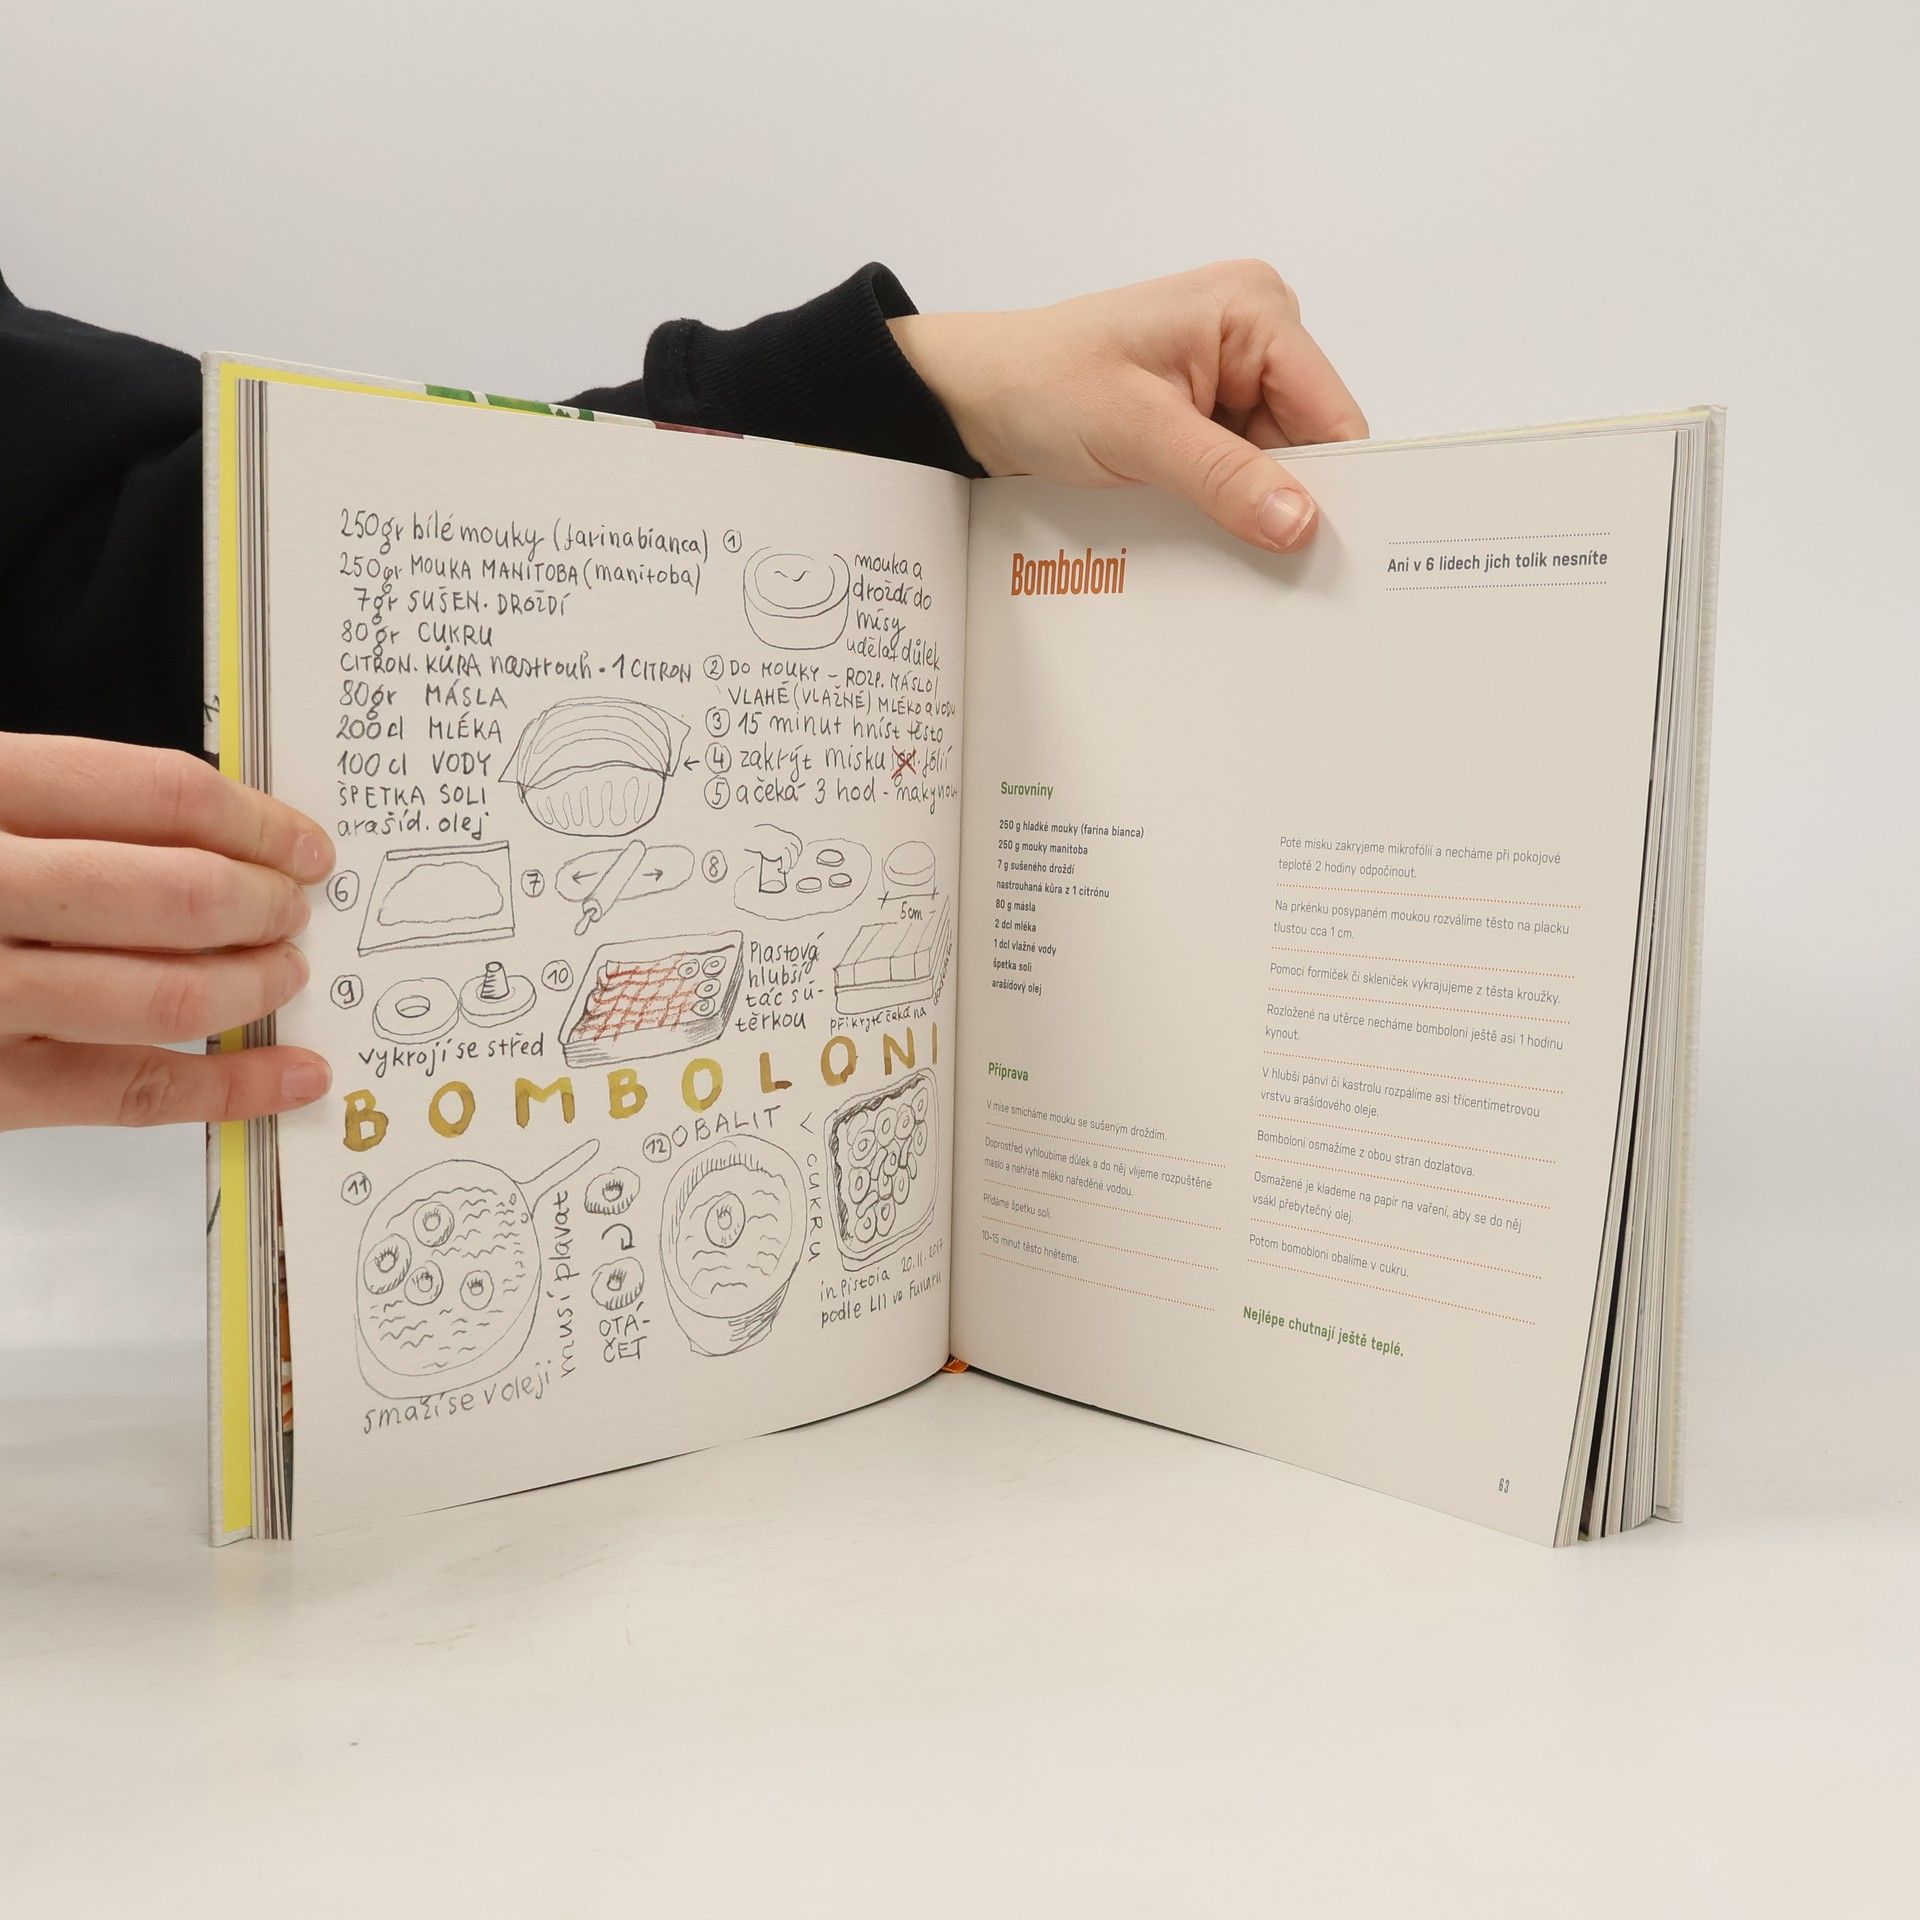 250gr bílé mouky (farina bianca)
250gr MOUKA MANITOBA (manitoba)
7gr SUŠEN. DROŽDÍ
80gr CUKRU
CITRON. KŮRA nastrouh. 1 CITRON
80gr MÁSLA
200cl MLÉKA
100cl VODY
ŠPETKA SOLI
arašíd. olej
1
mouka a
droždí do
mísy
udělat důlek
2 DO MOUKY – ROZP. MÁSLO/
VLAHÉ (VLAŽNÉ) MLÉKO a VODU
3 15 minut hníst těsto
4 zakrýt misku fólií
5 a čeká 3 hod - nakynout
6
7
8
5cm
9
vykrojí se střed
10
Plastová
hlubší
tác s ú-
těrkou
přikryté čeká na
BOMBOLONI
11
smaží se v oleji
musí plavat
OTÁ-
ČET
12 OBALIT
V CUKRU
in Pistoia 20.11.2017
podle LII ve Furnaru
Bomboloni
Ani v 6 lidech jich tolik nesníte
Surovniny
250 g hladké mouky (farina bianca)
250 g mouky manitoba
7 g sušeného droždí
nastrouhaná kůra z 1 citrónu
80 g másla
2 dcl mléka
1 dcl vlažné vody
špetka soli
arašídový olej
Příprava
V míse smícháme mouku se sušeným droždím.
Doprostřed vyhloubíme důlek a do něj vlijeme rozpuštěné
máslo a nahřáté mléko naředěné vodou.
Přidáme špetku soli.
10–15 minut těsto hněteme.
Poté misku zakryjeme mikrofólií a necháme při pokojové
teplotě 2 hodiny odpočinout.
Na prkénku posypaném moukou rozválíme těsto na placku
tlustou cca 1 cm.
Pomocí formiček či skleniček vykrajujeme z těsta kroužky.
Rozložené na utěrce necháme bomboloni ještě asi 1 hodinu
kynout.
V hlubší pánvi či kastrolu rozpálíme asi třícentimetrovou
vrstvu arašídového oleje.
Bomboloni osmažíme z obou stran dozlatova.
Osmažené je klademe na papír na vaření, aby se do něj
vsákl přebytečný olej.
Potom bomobloni obalíme v cukru.
Nejlépe chutnají ještě teplé.
63